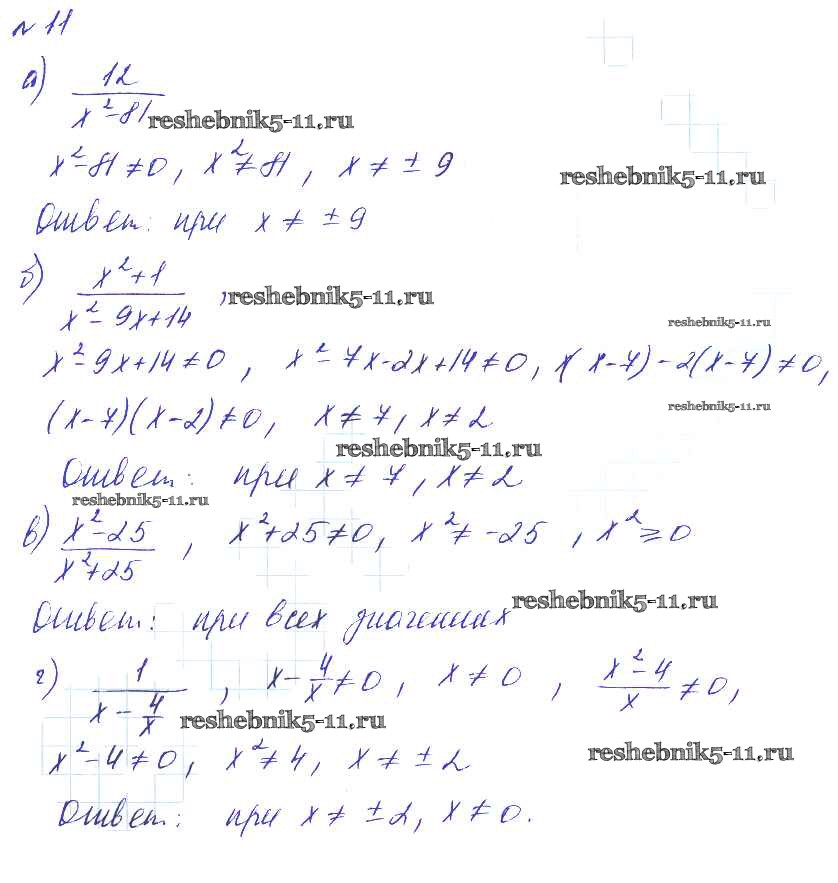 № 11
а) 12 / (x² - 81) reshebnik5-11.ru
x² - 81 ≠ 0, x² ≠ 81, x ≠ ± 9
reshebnik5-11.ru
Ответ: при x ≠ ± 9
б) (x² + 1) / (x² - 9x + 14) , reshebnik5-11.ru
reshebnik5-11.ru
x² - 9x + 14 ≠ 0, x² - 7x - 2x + 14 ≠ 0, x(x-7) - 2(x-7) ≠ 0,
(x-7)(x-2) ≠ 0, x ≠ 7, x ≠ 2
reshebnik5-11.ru
reshebnik5-11.ru
Ответ: при x ≠ 7, x ≠ 2
reshebnik5-11.ru
в) (x² - 25) / (x² + 25) , x² + 25 ≠ 0, x² ≠ -25 , x² ≥ 0
reshebnik5-11.ru
Ответ: при всех значениях
г) 1 / (x - 4/x) , x - 4/x ≠ 0, x ≠ 0 , (x² - 4) / x ≠ 0,
reshebnik5-11.ru
x² - 4 ≠ 0, x² ≠ 4, x ≠ ± 2
reshebnik5-11.ru
Ответ: при x ≠ ± 2, x ≠ 0.